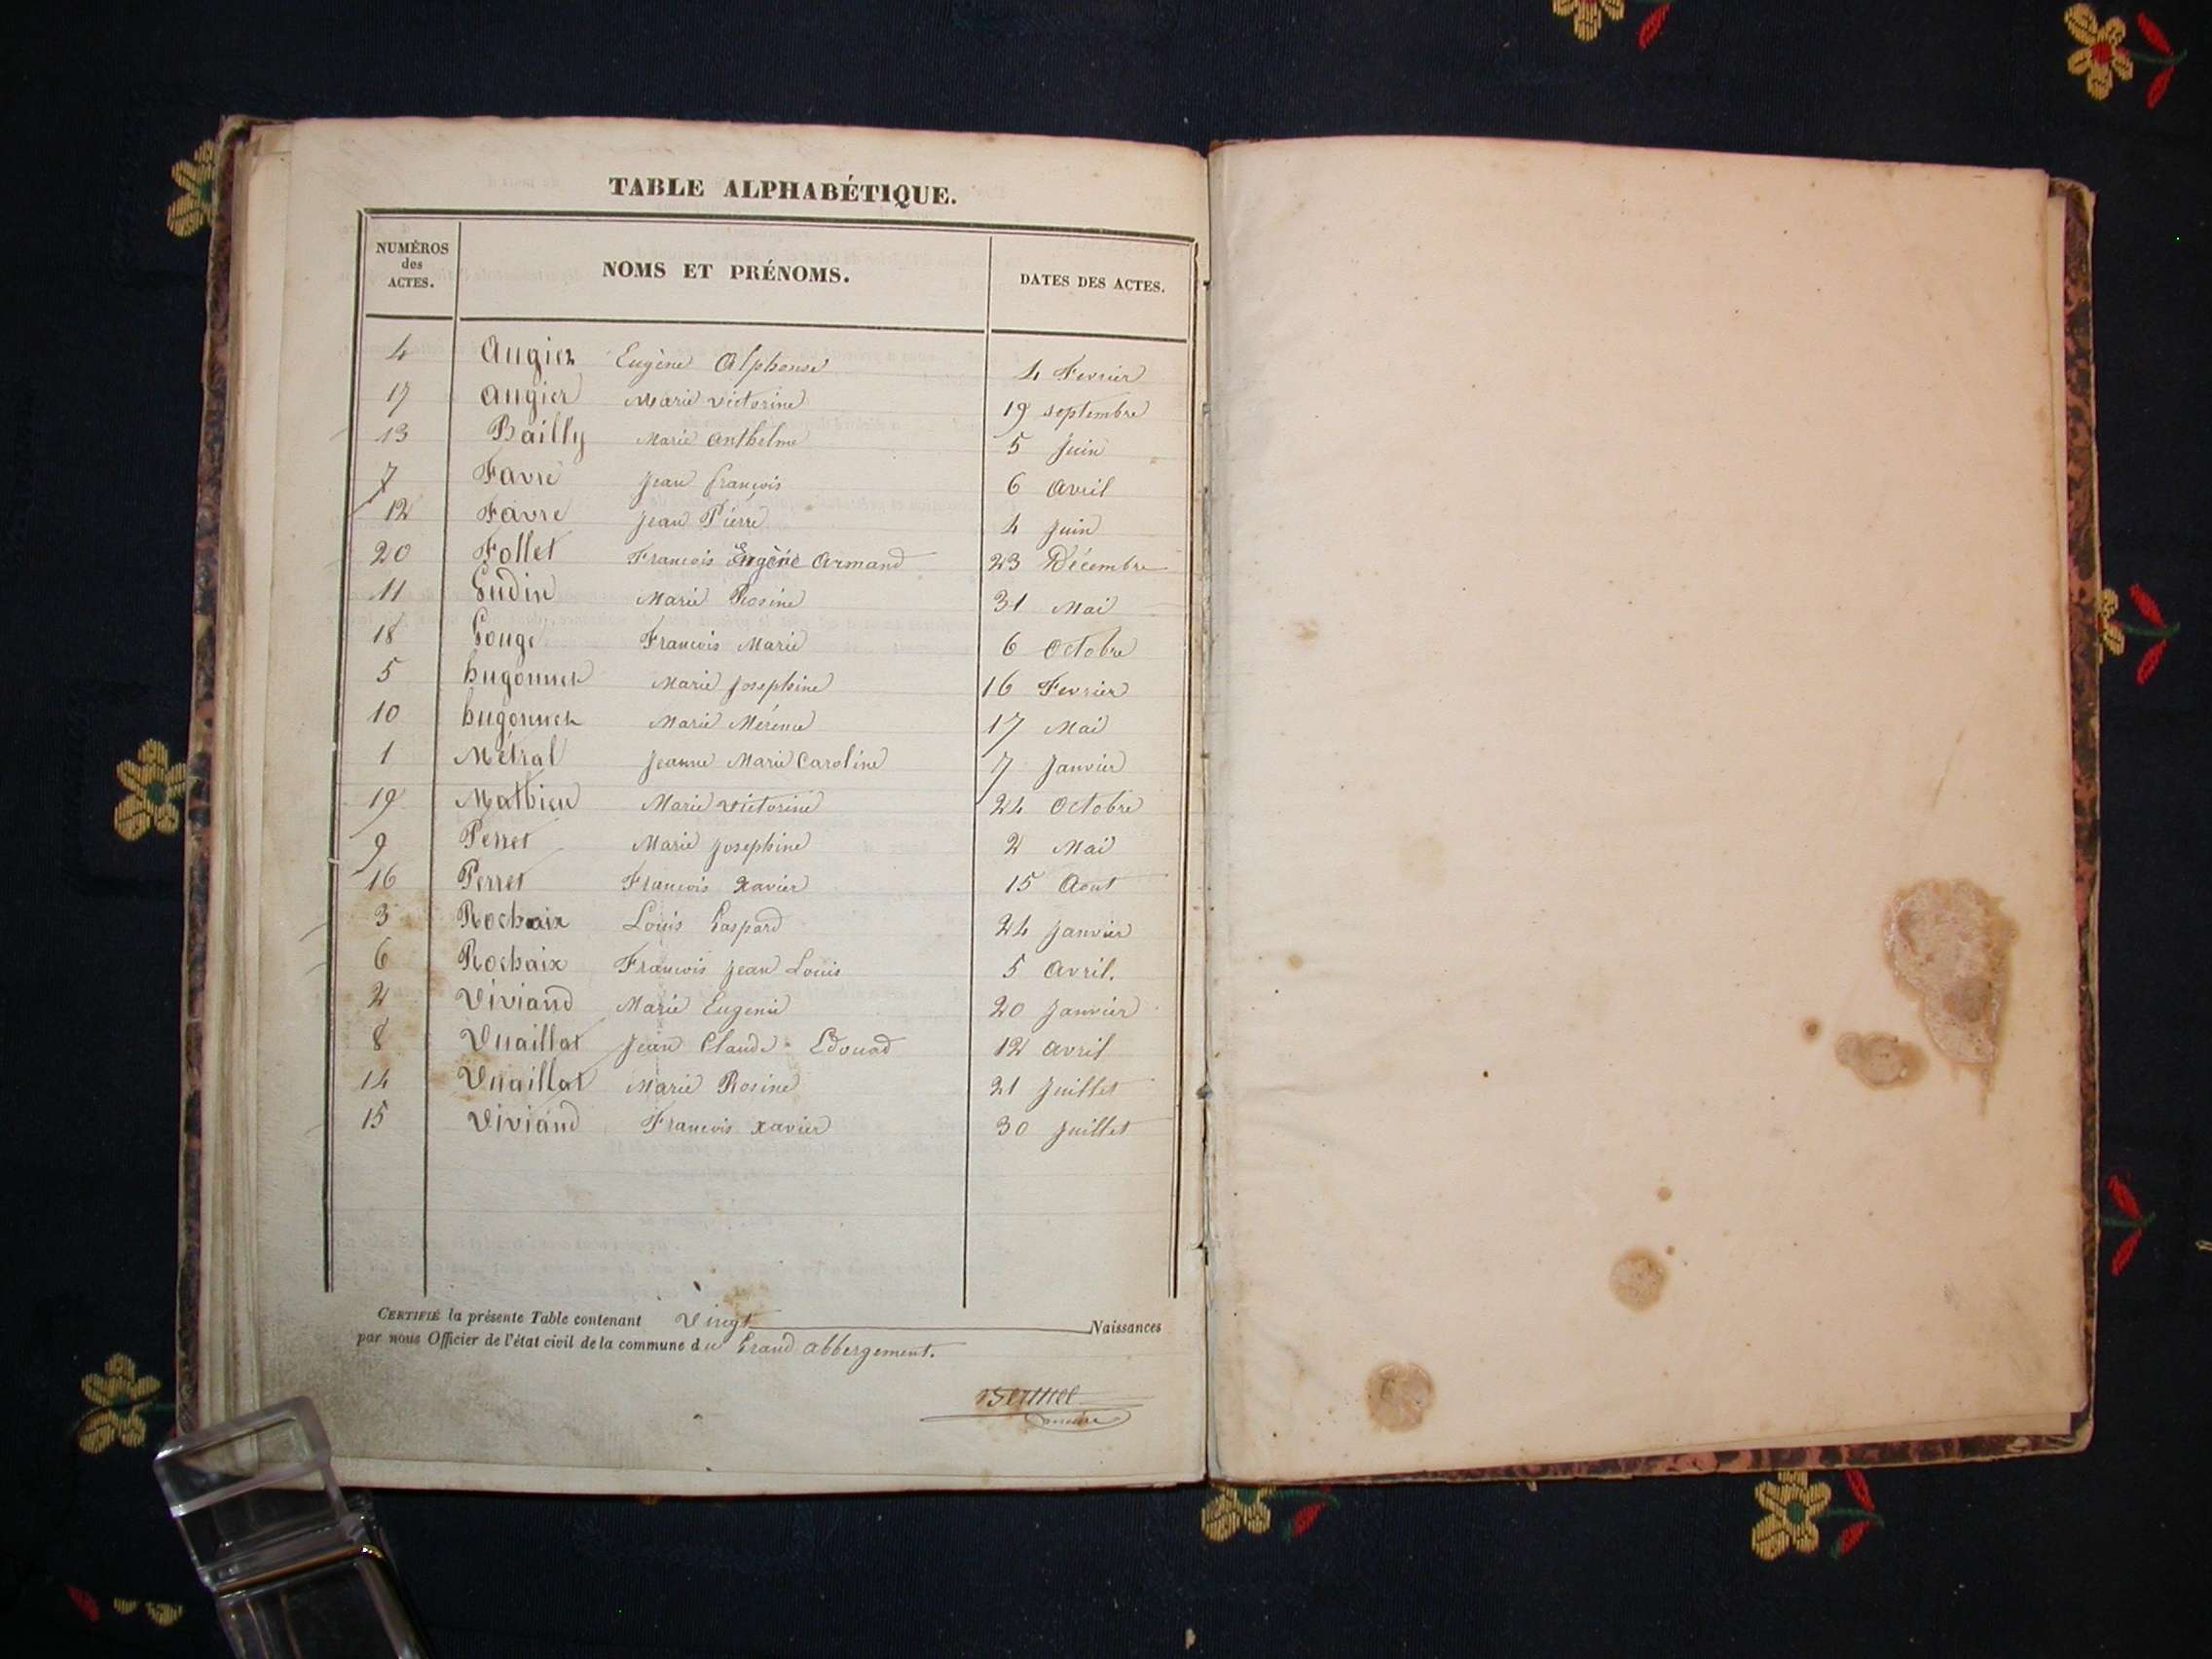 TABLE ALPHABÉTIQUE.
NUMÉROS des ACTES. NOMS ET PRÉNOMS. DATES DES ACTES.
4 Augier Eugène Alphonse 4 Fevrier
17 Augier Marie victorine 19 septembre
13 Bailly Marie Anthelme 5 Juin
7 Favre Jean françois 6 Avril
12 Favre Jean Pierre 4 Juin
20 Follet François Eugène Armand 23 Décembre
11 Gudin Marie Rosine 31 Mai
18 Gouge François Marie 6 Octobre
5 hugonnet Marie Josephine 16 Fevrier
10 hugonnet Marie 17 Mai
1 Métral Jeanne Marie Caroline 7 Janvier
19 Mathieu Marie victorine 24 Octobre
9 Perret Marie Josephine 2 Mai
16 Perret François xavier 15 Aout
3 Rochaix Louis Gaspard 24 Janvier
6 Rochaix François Jean Louis 5 Avril.
2 Viviand Marie Eugenie 20 Janvier
8 Vuaillat Jean Claude Edouad 12 Avril
14 Vuaillat Marie Rosine 21 Juillet
15 Viviand François xavier 30 Juillet
CERTIFIÉ la présente Table contenant Vingt Naissances
par nous Officier de l'état civil de la commune du Grand abbergement.
maire